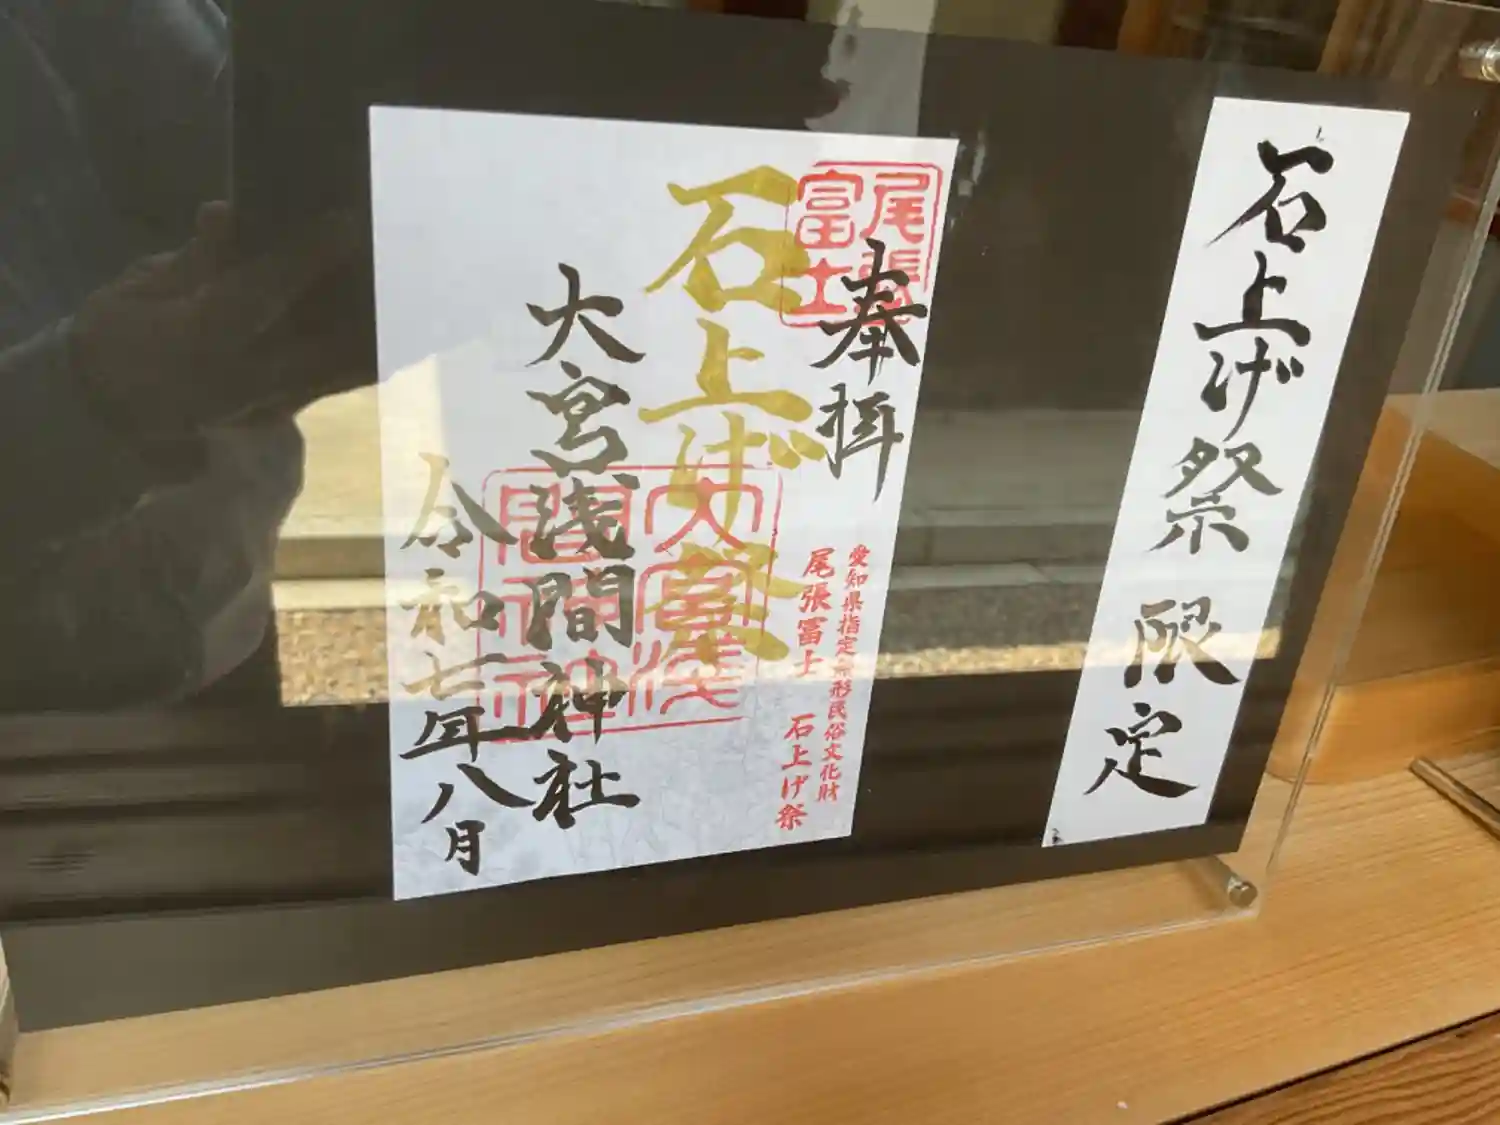 石上げ祭 限定
尾張
富士
奉拝
愛知県指定無形民俗文化財
尾張冨士 石上げ祭
石上げ祭
大宮浅
間神社
大宮浅間神社
令和七年八月